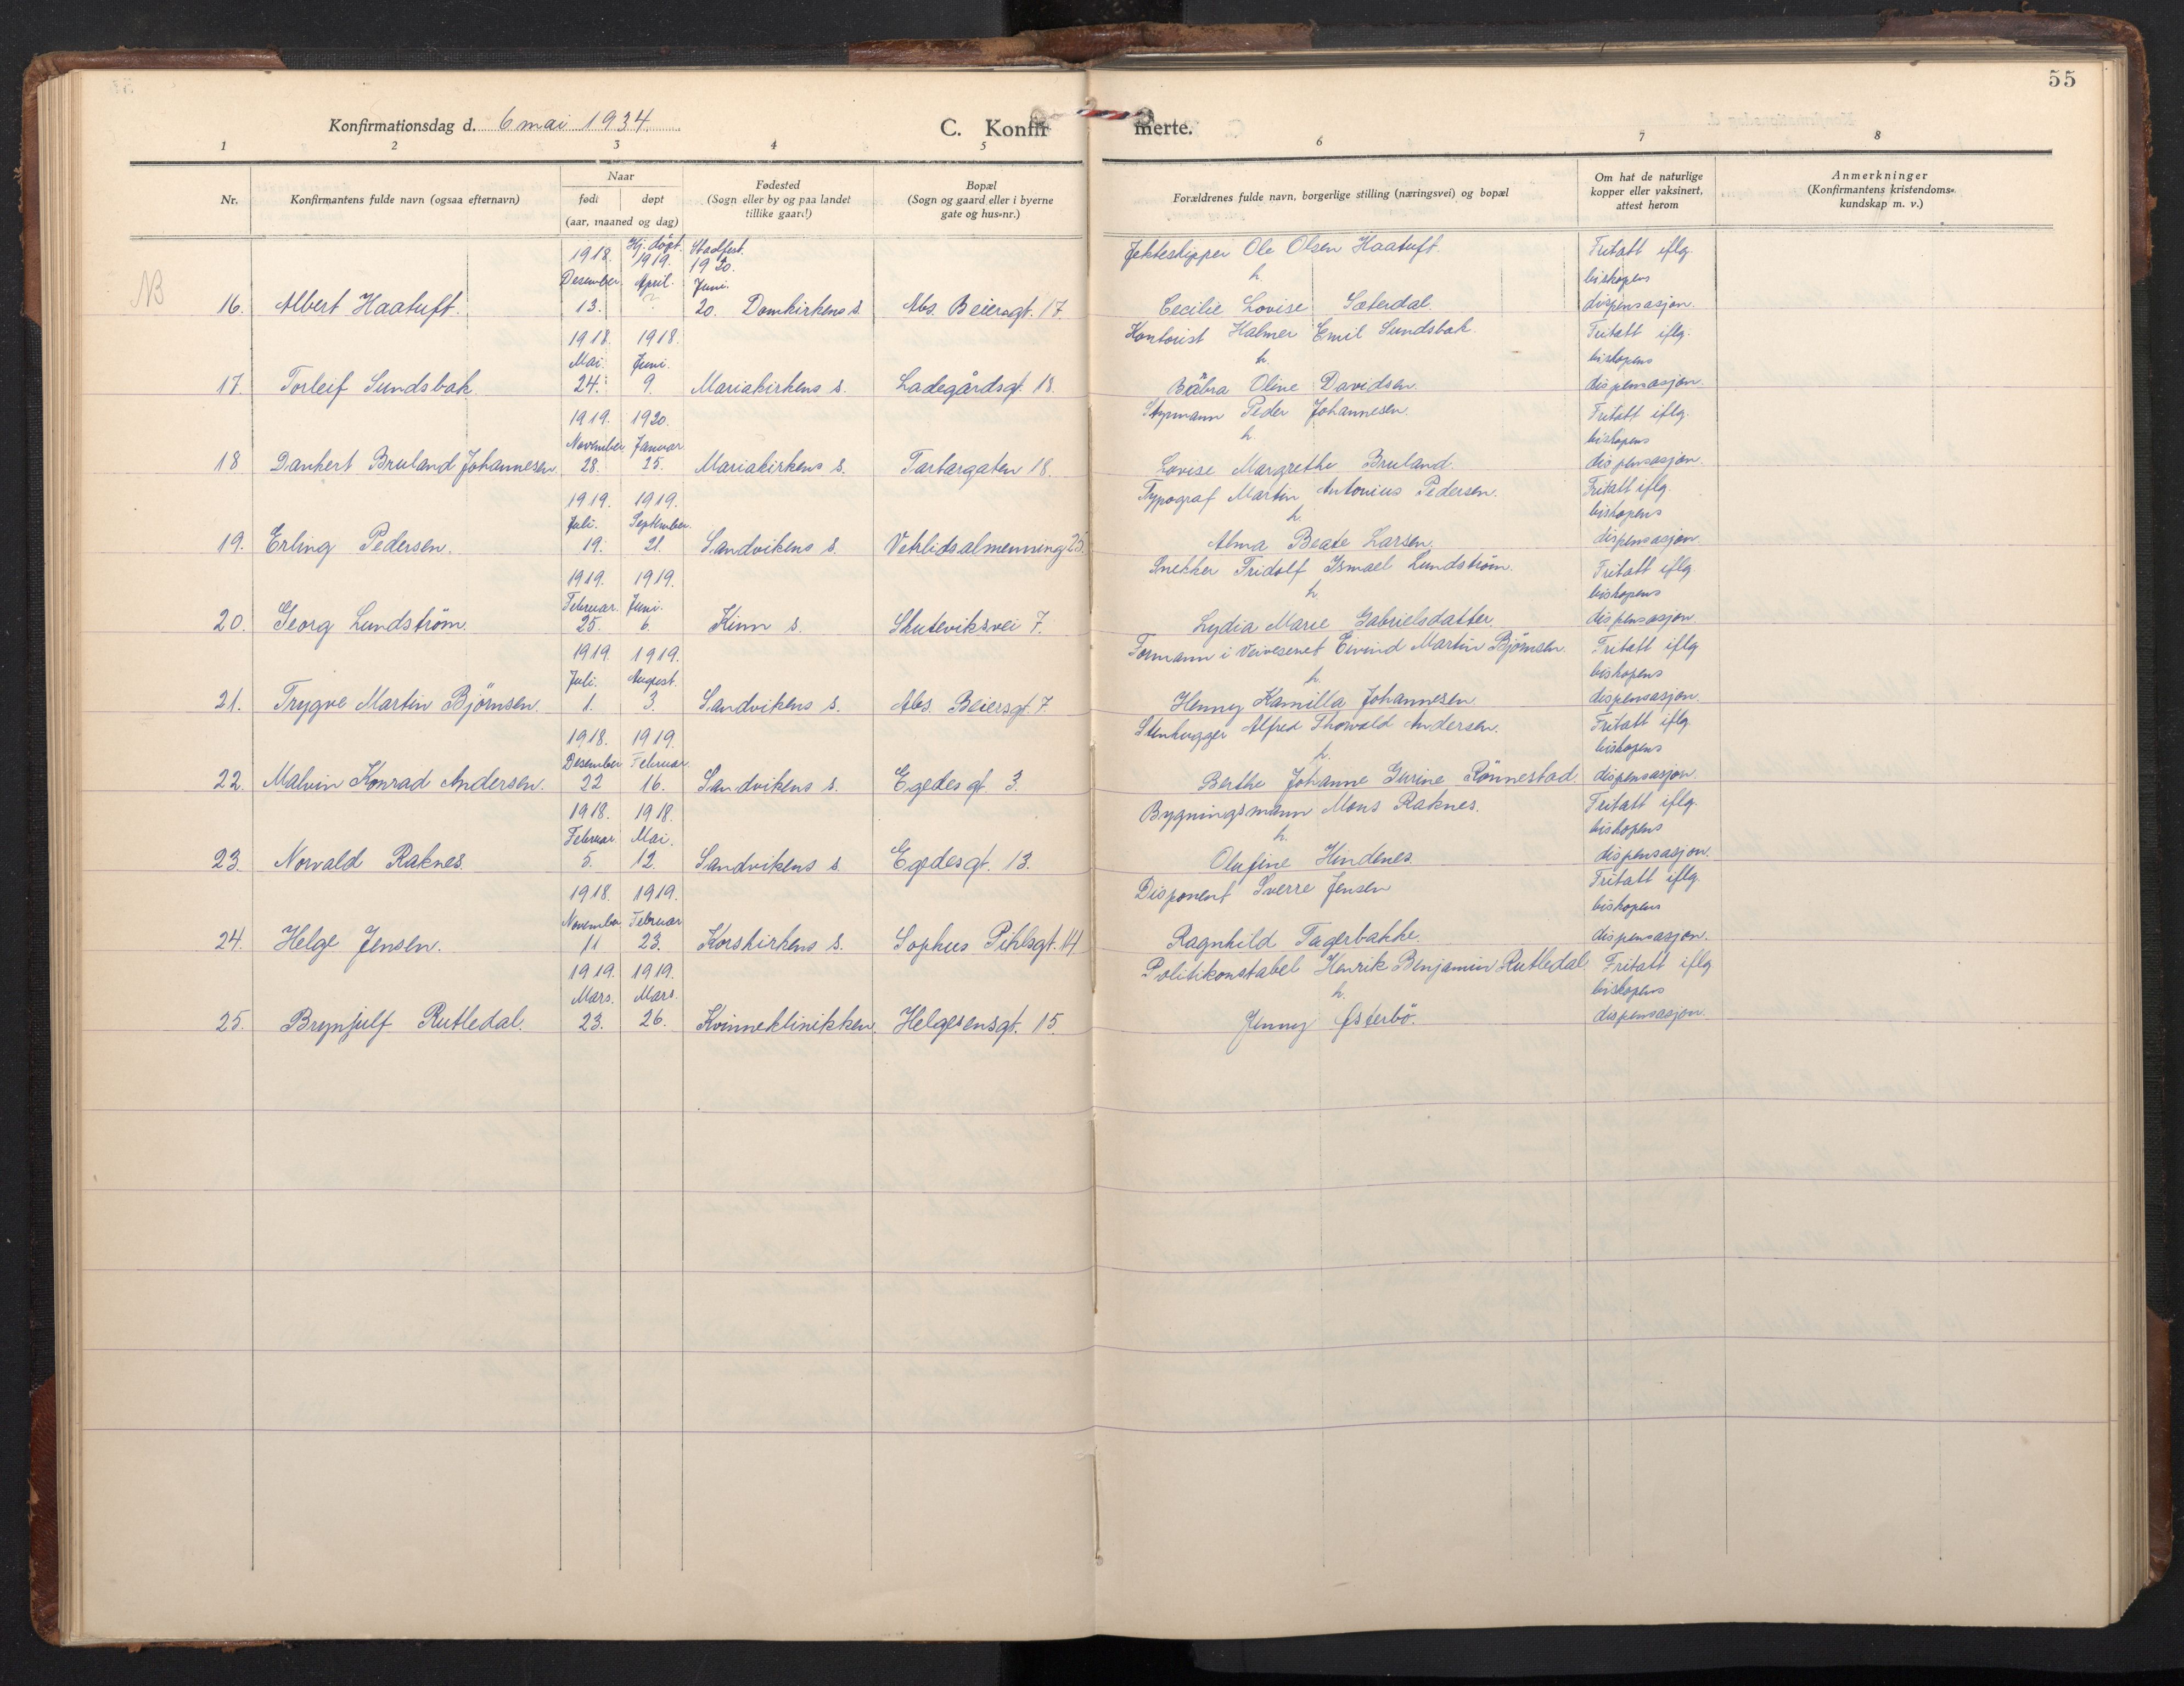 55
Konfirmationsdag d. 6 mai 1934.
C. Konfir merte.
1 2 3 4 5 6 7 8
Nr.
Konfirmantens fulde navn (ogsaa efternavn)
Naar
født døpt
(aar, maaned og dag)
Fødested
(Sogn eller by og paa landet
tillike gaard)
Bopæl
(Sogn og gaard eller i byerne
gate og hus-nr.)
Forældrenes fulde navn, borgerlige stilling (næringsvei) og bopæl
Om hat de naturlige
kopper eller vaksinert,
attest herom
Anmerkninger
(Konfirmantens kristendoms-
kundskap m. v.)
1918. Hj. døpt. Stadfest. Jekteskipper Ole Olsen Haatuft. Fritatt iflg.
1919. 1920.
Desember April. Juni. h. biskopens
NB 16. Albert Haatuft. 13. ? 20. Domkirkens s. Abs. Beiersgt. 17. Cecilie Lovise Sæterdal. dispensasjon.
1918. 1918. Kontorist Halmer Emil Sundsbak. Fritatt iflg.
Mai. Juni. h. biskopens
17. Torleif Sundsbak. 24. 9. Mariakirkens s. Ladegårdsgt. 18. Bäbra Oline Davidsen. dispensasjon.
1919. 1920. Styrmann Peder Johannesen. Fritatt iflg.
November Januar h. biskopens
18 Dankert Bruland Johannesen 28. 25. Mariakirkens s. Tartargaten 18. Lovise Margrethe Bruland. dispensasjon.
1919. 1919. Typograf Martin Antonius Pedersen. Fritatt iflg.
Juli. September. h. biskopens
19. Erling Pedersen. 19. 21. Sandvikens s. Vetrlidsalmenning 25. Alma Beate Larsen. dispensasjon.
1919. 1919. Snekker Fridolf Ismael Lundström. Fritatt iflg.
Februar. Juni. h. biskopens
20. Georg Lundström. 25. 6. Kinn s. Skuteviksvei 7. Lydia Marie Gabrielsdatter. dispensasjon.
1919. 1919. Formann i Veivesenet Eivind Martin Björnsen. Fritatt iflg.
Juli. August. h. biskopens
21. Trygve Martin Björnsen. 1. 3. Sandvikens s. Abs. Beiersgt. 7. Henny Kamilla Johannesen. dispensasjon.
1918. 1919. Stenhugger Alfred Thorvald Andersen. Fritatt iflg.
Desember Februar. h. biskopens
22. Malvin Konrad Andersen. 22 16. Sandvikens s. Egedes gt. 3. Berthe Johanne Gurine Rönnestad. dispensasjon.
1918. 1918. Bygningsmann Mons Raknes. Fritatt iflg.
Februar Mai. h. biskopens
23. Norvald Raknes. 5. 12. Sandvikens s. Egedesgt. 13. Olufine Hindenes. dispensasjon.
1918. 1919. Disponent Sverre Jensen Fritatt iflg.
November Februar biskopens
24. Helge Jensen. 11 23. Korskirkens s. Sophus Pihlsgt. 14 Ragnhild Fagerbakke. dispensasjon.
1919. 1919. Politikonstabel Henrik Benjamin Rutledal. Fritatt iflg
Mars. Mars. h. biskopens
25. Brynjulf Rutledal. 23. 26. Kvinneklinikken. Helgesensgt. 15. Jenny Østerbö. dispensasjon.